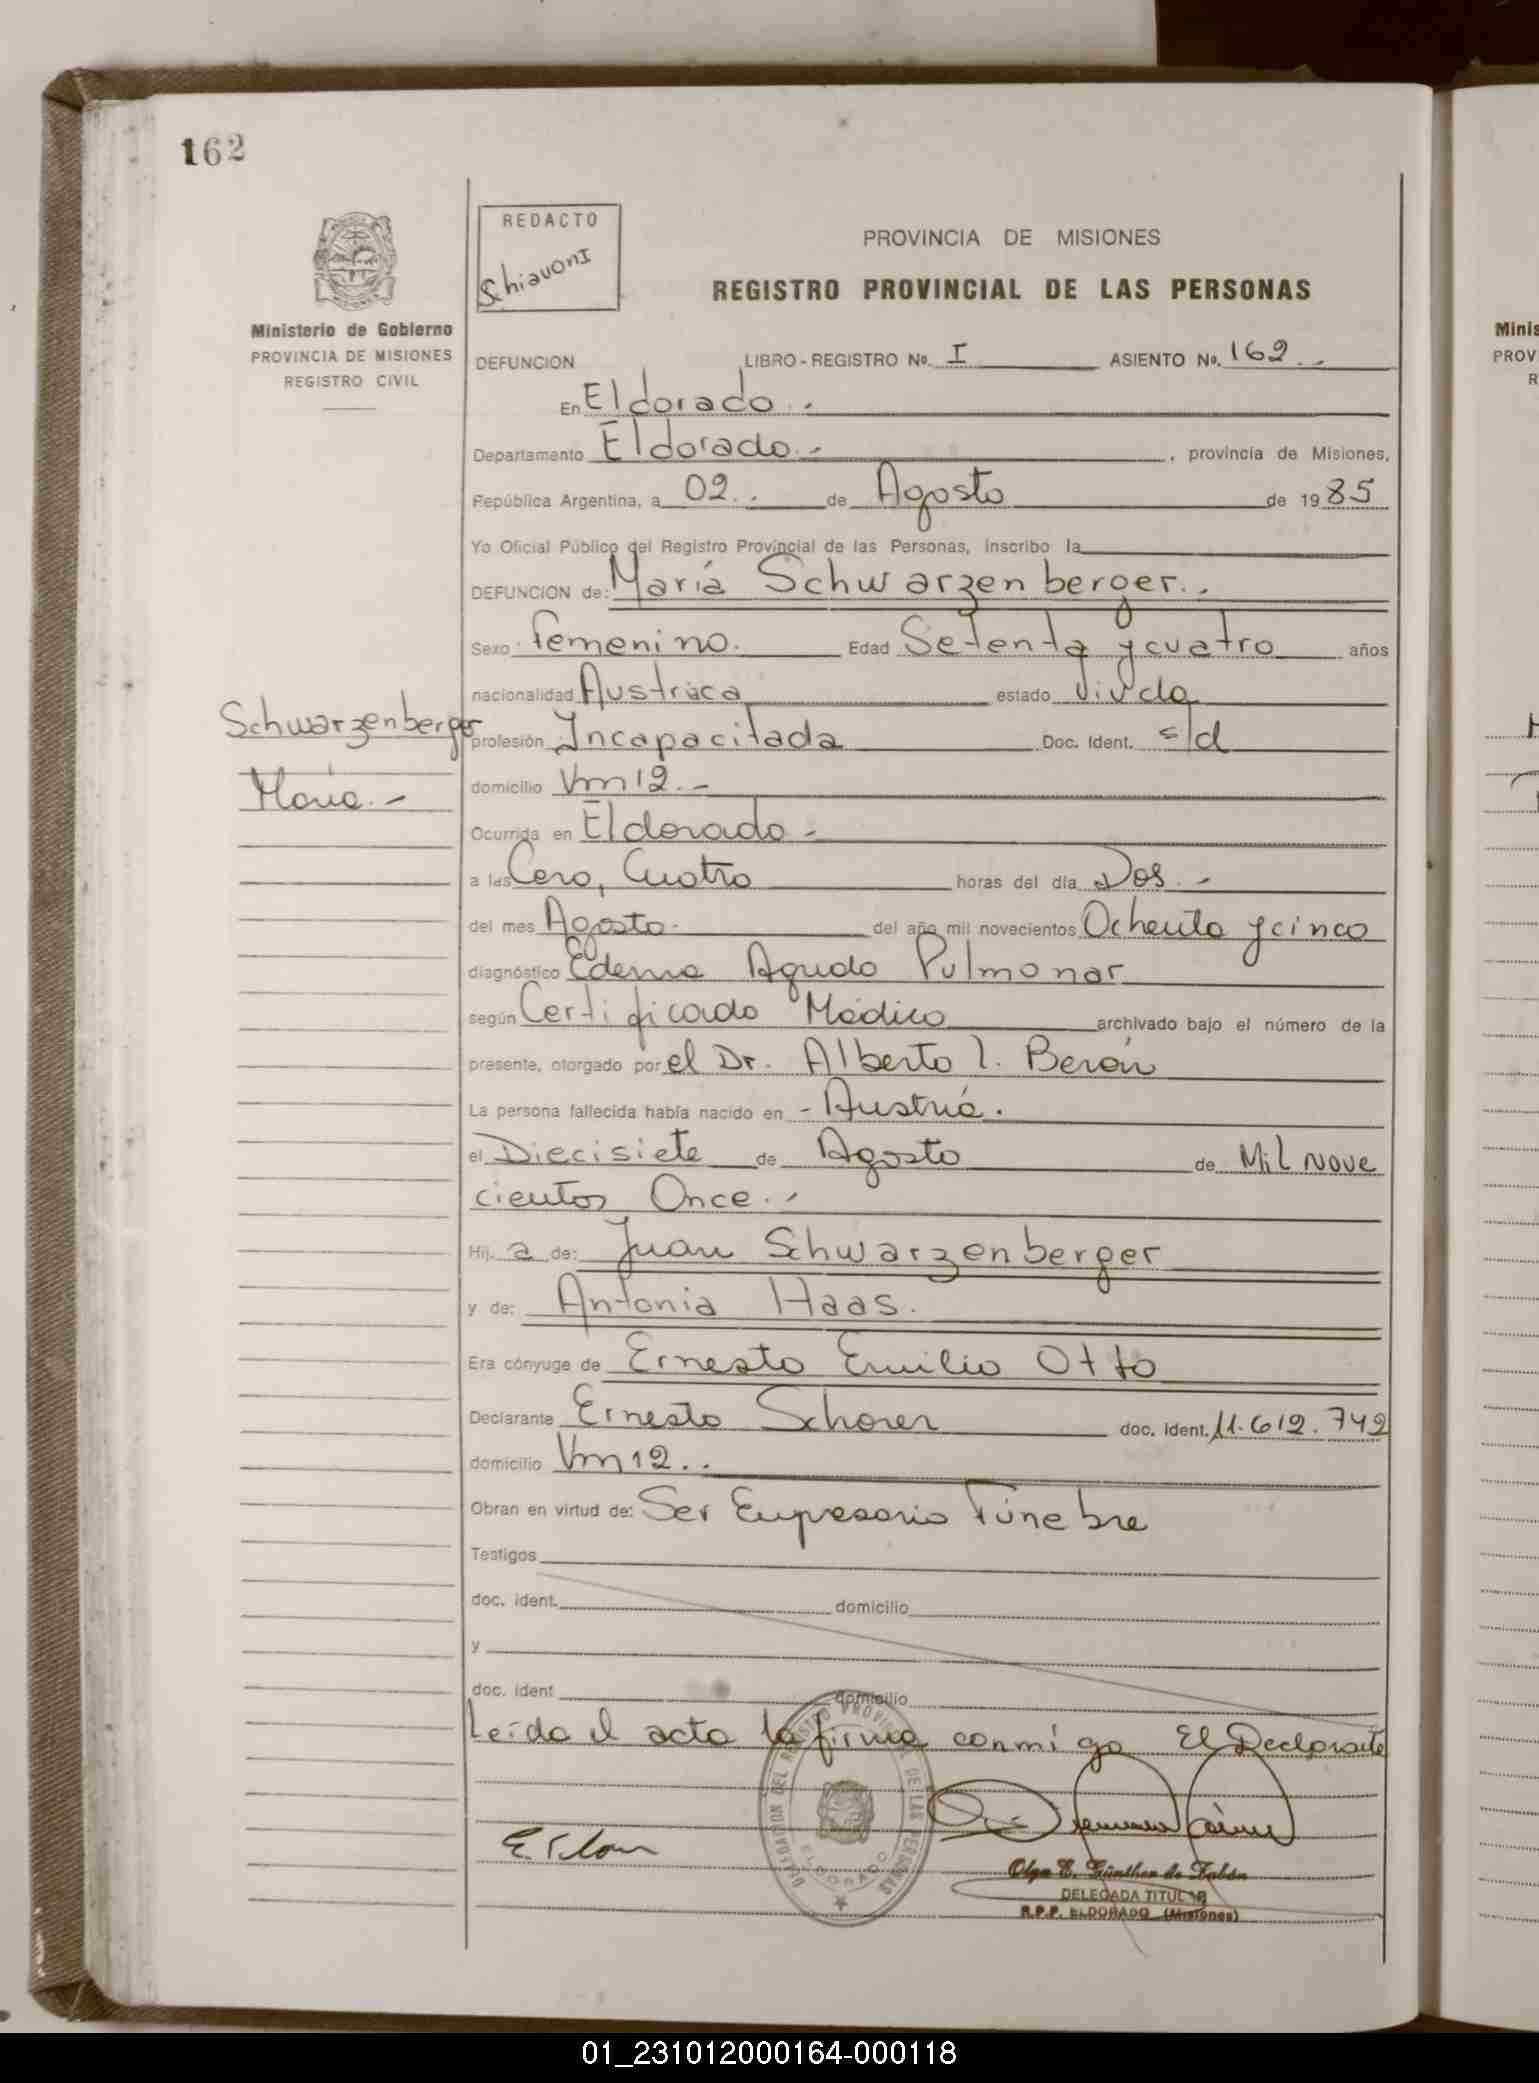 162
REDACTO
Schiavoni
Ministerio de Gobierno
PROVINCIA DE MISIONES
REGISTRO CIVIL
PROVINCIA DE MISIONES
REGISTRO PROVINCIAL DE LAS PERSONAS
DEFUNCION LIBRO - REGISTRO No. I ASIENTO No. 162..
En Eldorado.-
Departamento Eldorado.- , provincia de Misiones,
República Argentina, a 02.. de Agosto de 1985
Yo Oficial Público del Registro Provincial de las Personas, inscribo la
DEFUNCION de: María Schwarzenberger..
Sexo Femenino. Edad Setenta y cuatro años
nacionalidad Austríaca estado Viuda
Schwarzenberger
María.-
profesión Incapacitada Doc. Ident. s/d
domicilio Vm 12.-
Ocurrida en Eldorado-
a las Cero, Cuatro horas del día Dos.-
del mes Agosto. del año mil novecientos Ochenta y cinco
diagnóstico Edema Agudo Pulmonar
según Certificado Médico archivado bajo el número de la
presente, otorgado por el Dr. Alberto I. Berón
La persona fallecida había nacido en - Austria.
el Diecisiete de Agosto de Mil nove
cientos Once.-
Hij a de: Juan Schwarzenberger
y de: Antonia Haas.
Era cónyuge de Ernesto Emilio Otto
Declarante Ernesto Schorer doc. ident. 11.612.742
domicilio Vm 12..
Obran en virtud de: Ser Empresario Fúnebre
Testigos
doc. ident. domicilio
y
doc. ident domicilio
Leída el acta la firma conmigo El Declarante
DELEGACION DEL REGISTRO PROVINCIAL DE LAS PERSONAS
ELDORADO
Olga E. Günther de Zabán
DELEGADA TITULAR
R.P.P. ELDORADO (Misiones)
Minis
PROV
R
01_231012000164-000118